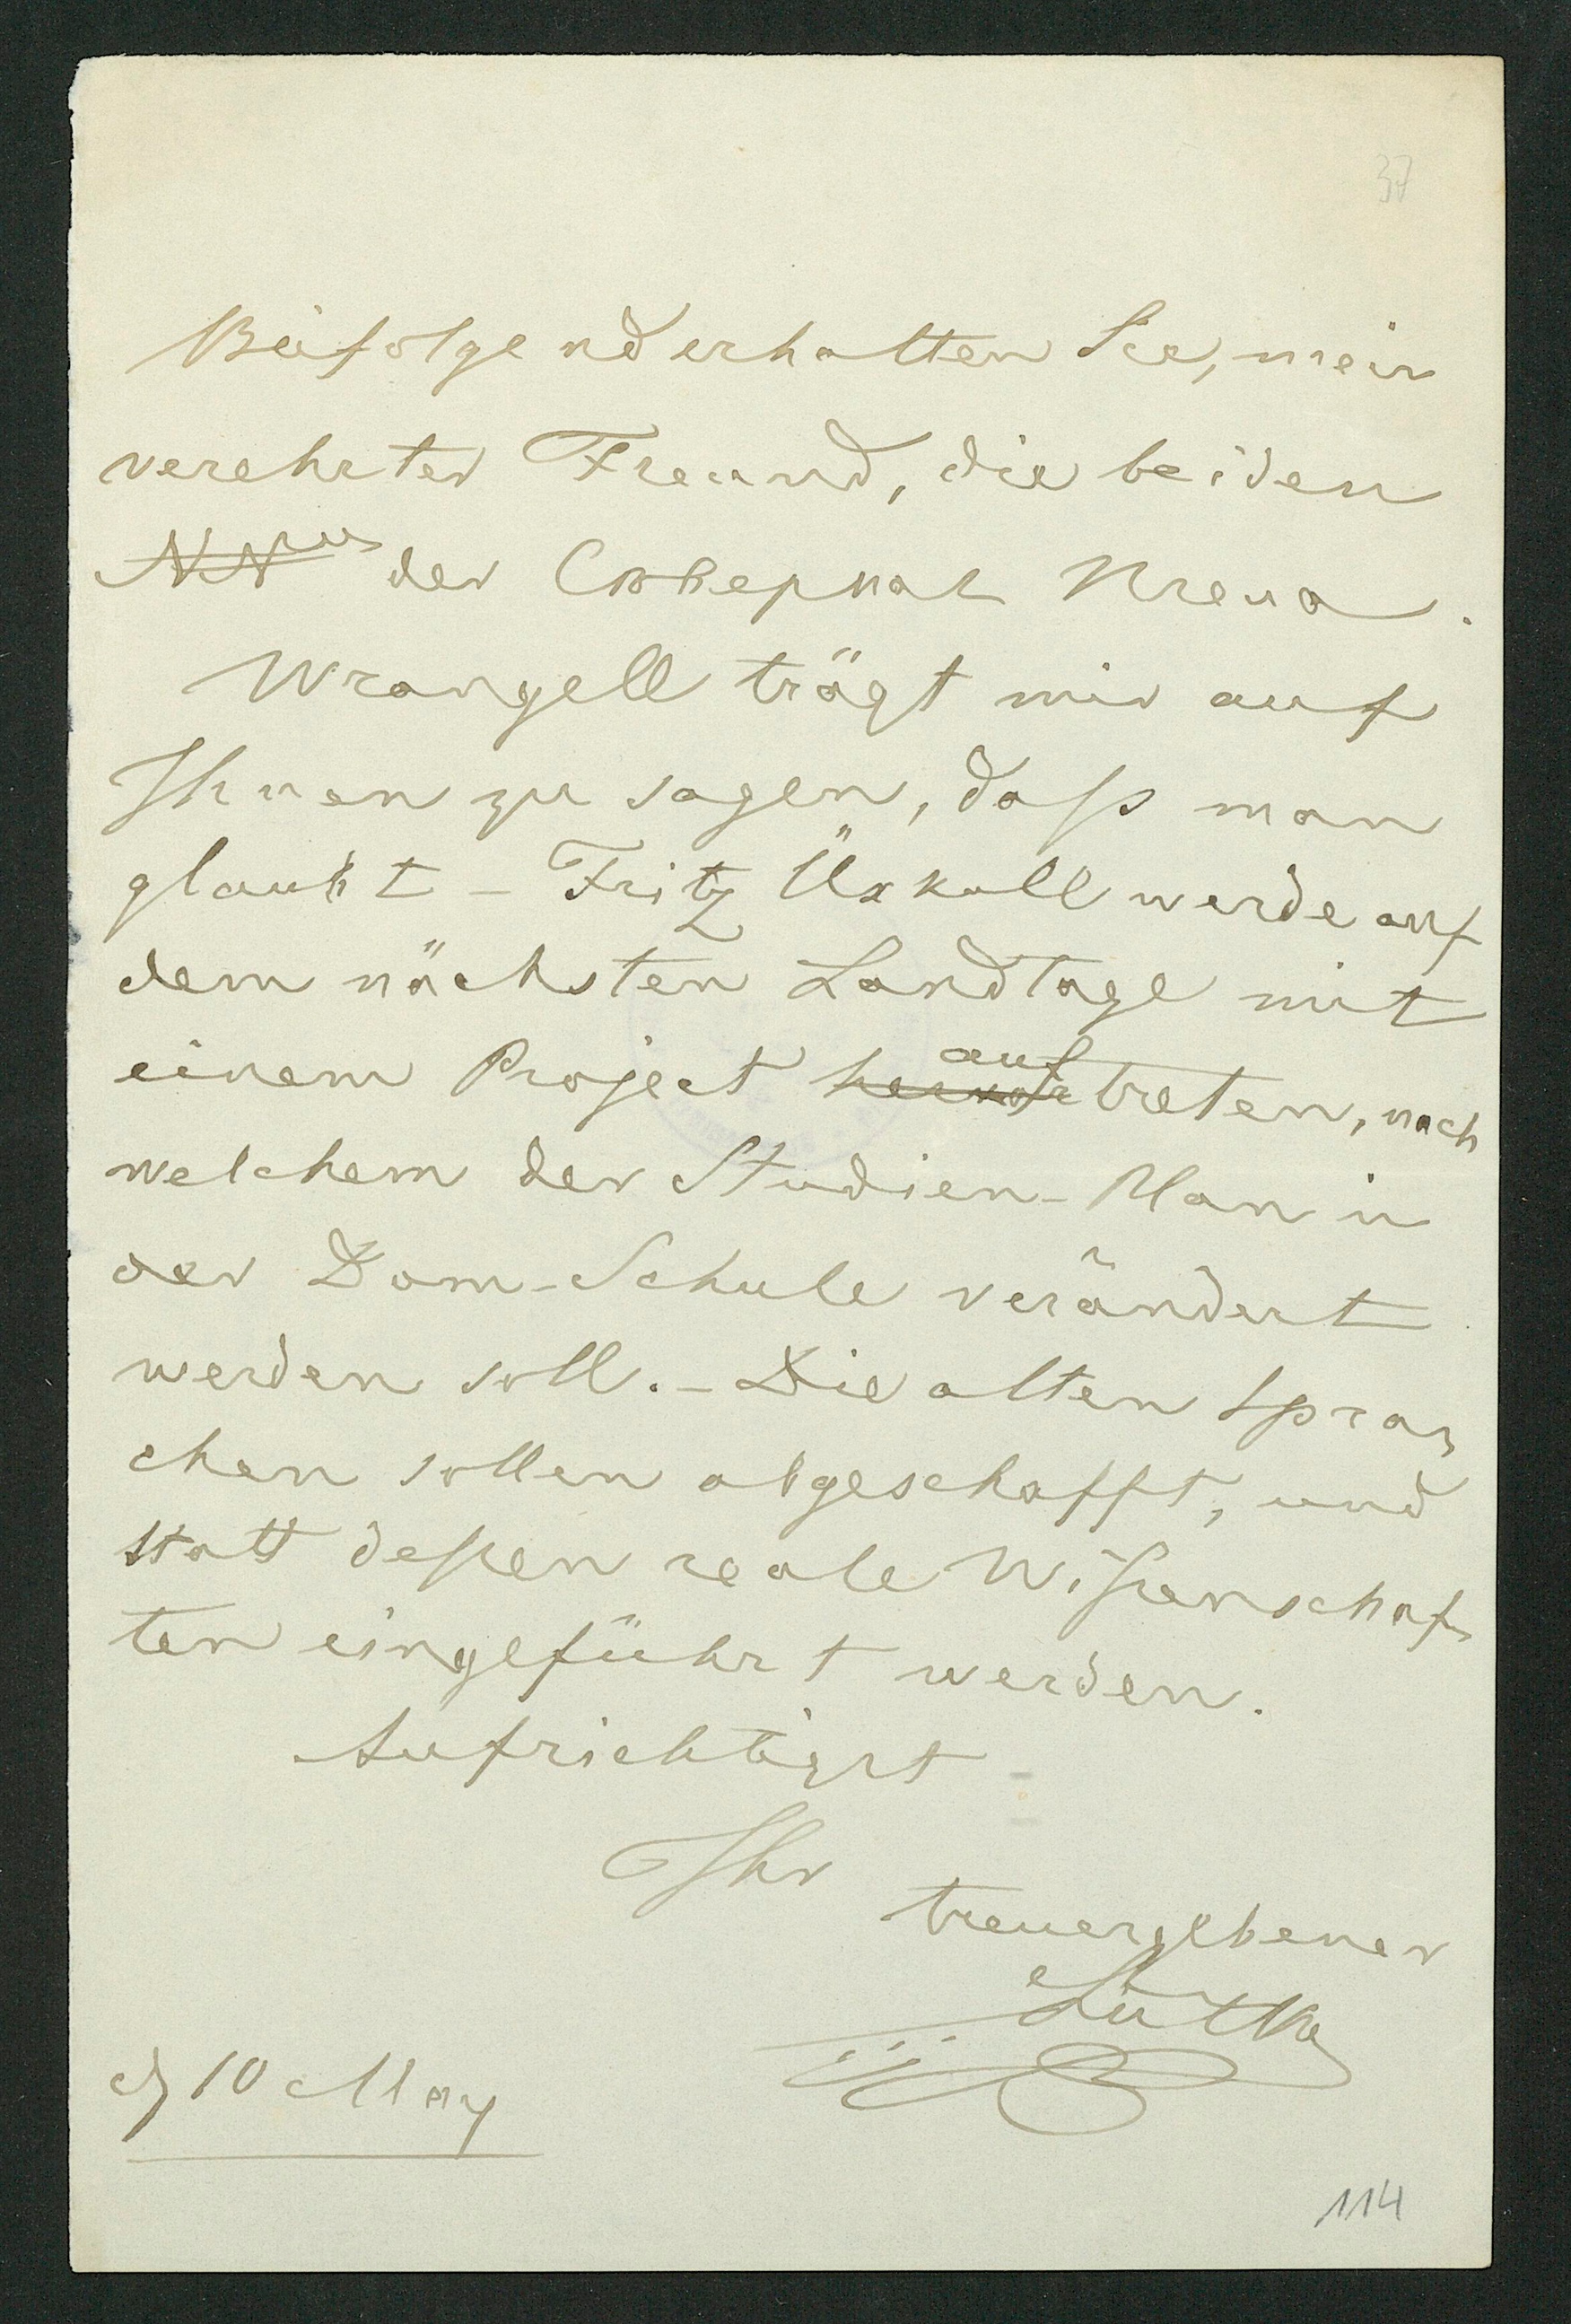 37
Beifolgend erhalten Sie, mein
verehrter Freund, die beiden
NN der Сѣверная Пчела.
Wrangell trägt mir auf
Ihnen zu sagen, daß man
glaubt – Fritz Üxkull werde auf
dem nächsten Landtage mit
einem Project hervor auftreten, nach
welchem der Studien-Plan in
der Dom-Schule verändert
werden soll. – Die alten Spra-
chen sollen abgeschafft, und
statt deßen reale Wißenschaf-
ten eingeführt werden.
Aufrichtigst
Ihr
treuergebener
Lütke
d 10 May
114